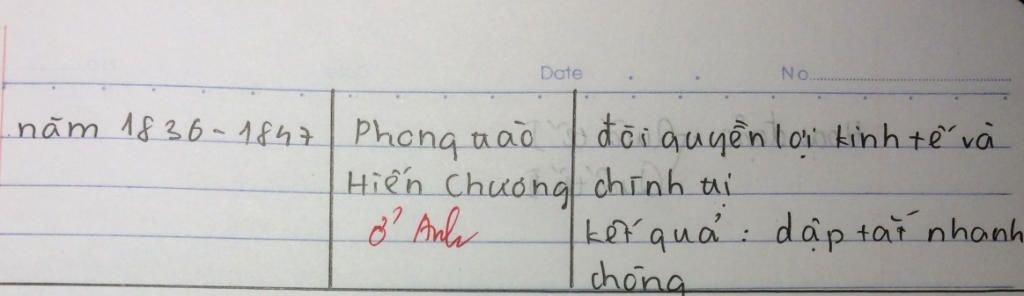 Date No.
năm 1836-1847 Phong tràò đòi quyền lợi kinh tế và
Hiến Chương chính trị
ở Anh kết quả : dập tắt nhanh
chóng